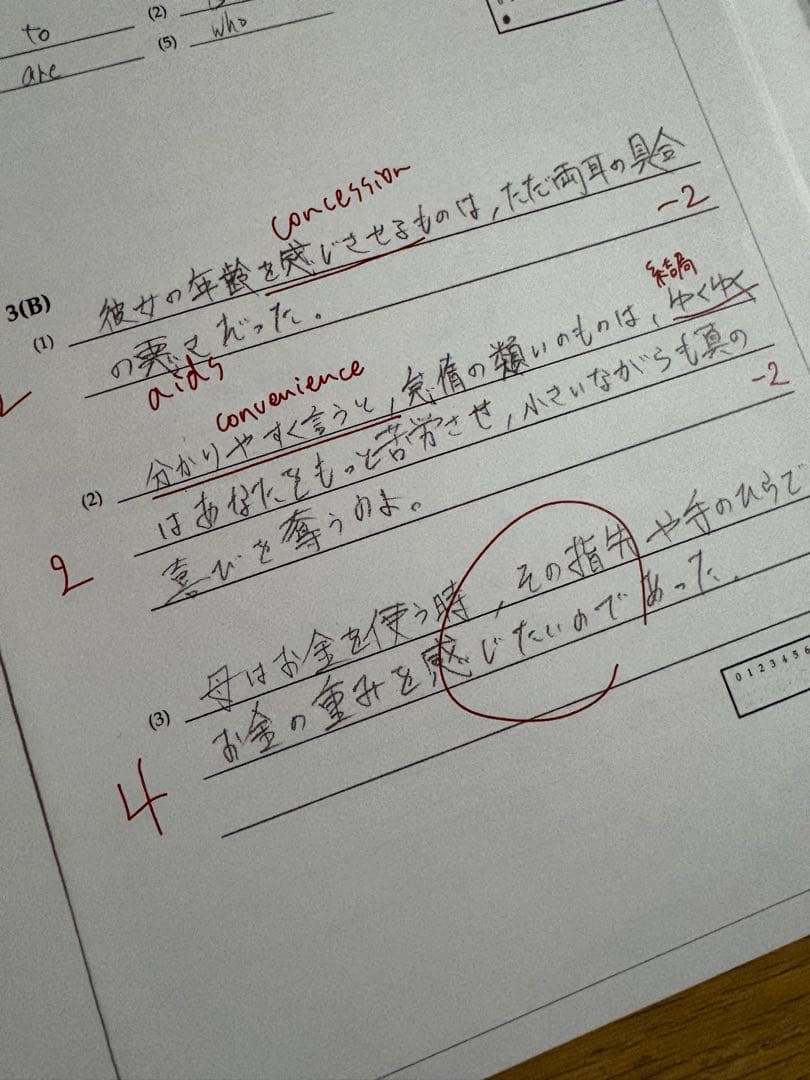 to
(2)
are
(5) who
concession
3(B)
(1) 彼女の年齢を感じさせるものは,ただ両耳の具合
-2
の悪さだった。
aids
convenience
結局
(2) 分かりやすく言うと,怠惰の類いのものは,ゆくゆく
-2
はあなたをもっと苦労させ,小さいながらも真の
2
喜びを奪うのよ。
(3) 母はお金を使う時,その指先や手のひらで
お金の重みを感じたいのであった.
4
0 1 2 3 4 5 6